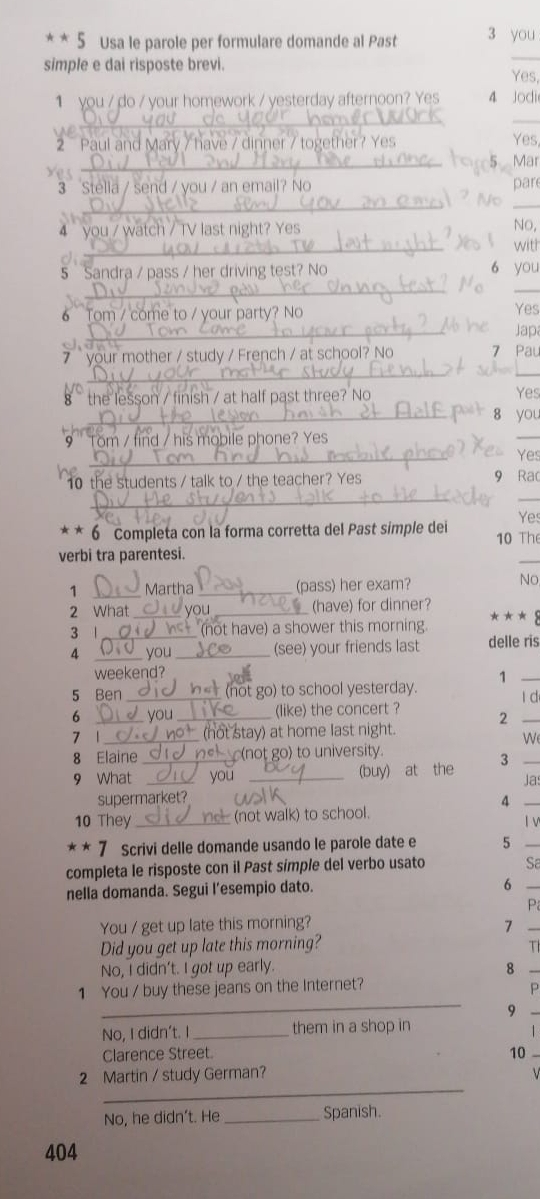 ★★ 5 Usa le parole per formulare domande al Past
simple e dai risposte brevi.
1 you / do / your homework / yesterday afternoon? Yes
Did you do your homework
yesterday afternoon?
2 Paul and Mary / have / dinner / together? Yes
Did Paul and Mary have dinner together
Yes
3 Stella / send / you / an email? No
Did Stella send you an email? No
she didn't
4 you / watch / TV last night? Yes
Did you watch TV last night? Yes I
did
5 Sandra / pass / her driving test? No
Did Sandra pass her driving test? No
she didn't
6 Tom / come to / your party? No
Did Tom come to your party? No he
didn't
7 your mother / study / French / at school? No
Did your mother study French at school
No she didn't
8 the lesson / finish / at half past three? No
Did the lesson finish at Half past
three?
9 Tom / find / his mobile phone? Yes
Did Tom find his mobile phone? Yes
he
10 the students / talk to / the teacher? Yes
Did the students talk to the teacher
Yes they did
★★ 6 Completa con la forma corretta del Past simple dei
verbi tra parentesi.
1 Did Martha (pass) her exam?
2 What did you have (have) for dinner?
3 I did not (not have) a shower this morning.
4 Did you see (see) your friends last
weekend?
5 Ben did not (not go) to school yesterday.
6 Did you like (like) the concert ?
7 I did not (not stay) at home last night.
8 Elaine did not (not go) to university.
9 What did you buy (buy) at the
supermarket?
walk
10 They did not (not walk) to school.
★★ 7 Scrivi delle domande usando le parole date e
completa le risposte con il Past simple del verbo usato
nella domanda. Segui l'esempio dato.
You / get up late this morning?
Did you get up late this morning?
No, I didn't. I got up early.
1 You / buy these jeans on the Internet?
No, I didn't. I ________ them in a shop in
Clarence Street.
2 Martin / study German?
No, he didn't. He ________ Spanish.
404
3 you
Yes,
4 Jodie
Yes,
5 Mar
pare
No,
with
6 you
Yes
Japa
7 Pau
Yes
8 you
Yes
9 Rac
Yes
10 The
No
★★★ 8
delle ris
1
I d
2
We
3
Jas
4
I w
5
Sa
6
Pa
7
Th
8
P
9
I
10
V